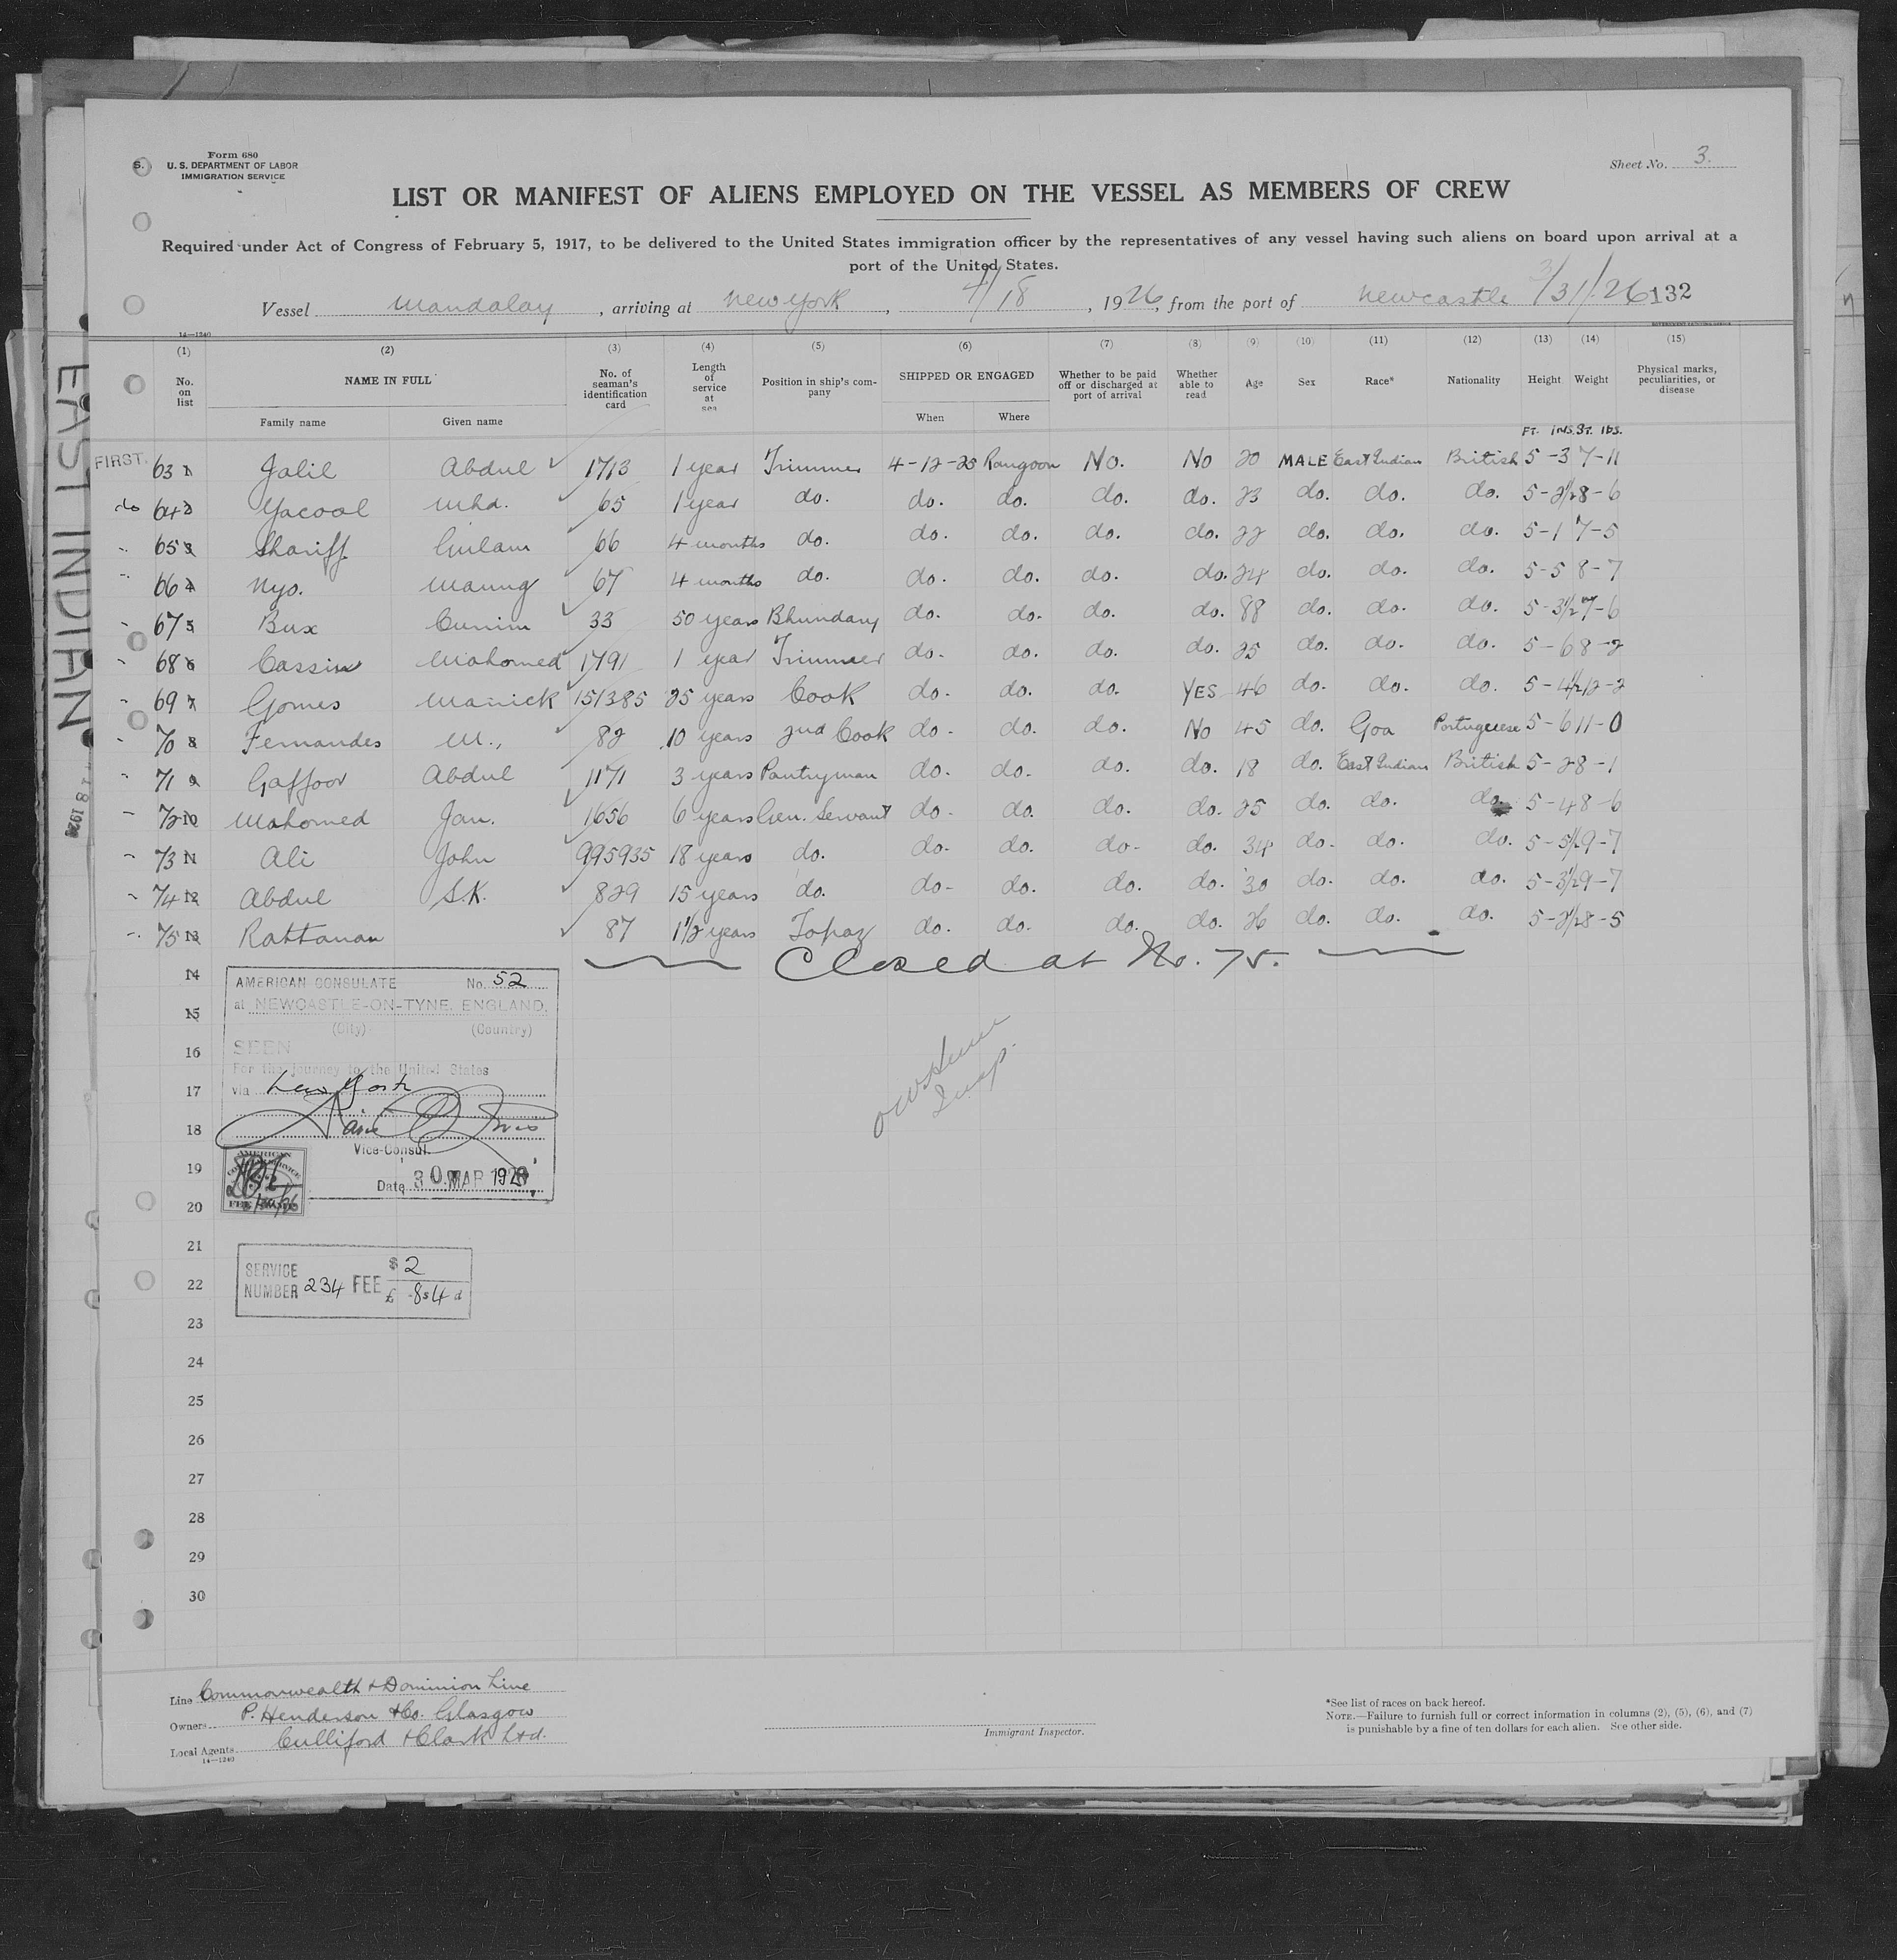 Form 680
S. U. S. DEPARTMENT OF LABOR
IMMIGRATION SERVICE
Sheet No. 3.
LIST OR MANIFEST OF ALIENS EMPLOYED ON THE VESSEL AS MEMBERS OF CREW
Required under Act of Congress of February 5, 1917, to be delivered to the United States immigration officer by the representatives of any vessel having such aliens on board upon arrival at a
port of the United States.
Vessel Mandalay, arriving at New York, 4/18, 1926, from the port of Newcastle 3/31/26 132
14—1240
EAST INDIAN
(1) (2) (3) (4) (5) (6) (7) (8) (9) (10) (11) (12) (13) (14) (15)
No. on list NAME IN FULL No. of seaman's identification card Length of service at sea Position in ship's company SHIPPED OR ENGAGED Whether to be paid off or discharged at port of arrival Whether able to read Age Sex Race* Nationality Height Weight Physical marks, peculiarities, or disease
Family name Given name When Where
FT. INS. ST. lbs.
FIRST. 63 1 Jalil Abdul 1713 1 year Trimmer 4-12-25 Rangoon No. No 20 MALE East Indian British 5-3 7-11
do 64 2 Yacool Mhd. 65 1 year do. do. do. do. do. 23 do. do. do. 5-2½ 8-6
" 65 3 Shariff Gulam 66 4 months do. do. do. do. do. 22 do. do. do. 5-1 7-5
" 66 4 Nyo. Maung 67 4 months do. do. do. do. do. 24 do. do. do. 5-5 8-7
" 67 5 Bux Cunim 33 50 years Bhundary do. do. do. do. 88 do. do. do. 5-3½ 7-6
" 68 6 Cassim Mahomed 1791 1 year Trimmer do. do. do. do. 25 do. do. do. 5-6 8-2
" 69 7 Gomes Manick 151385 25 years Cook do. do. do. YES 46 do. do. do. 5-4½ 12-2
" 70 8 Fernandes M., 82 10 years 2nd Cook do. do. do. No 45 do. Goa Portuguese 5-6 11-0
" 71 9 Gaffoor Abdul 1171 3 years Pantryman do. do. do. do. 18 do. East Indian British 5-2 8-1
" 72 10 Mahomed Jan. 1656 6 years Gen. Servant do. do. do. do. 25 do. do. do. 5-4 8-6
" 73 11 Ali John 995935 18 years do. do. do. do. do. 34 do. do. do. 5-5½ 9-7
" 74 12 Abdul S.K. 829 15 years do. do. do. do. do. 30 do. do. do. 5-3½ 9-7
" 75 13 Rattanan 87 1½ years Topaz do. do. do. do. 26 do. do. do. 5-2½ 8-5
Closed at No. 75.
14
AMERICAN CONSULATE No. 52
15
at NEWCASTLE-ON-TYNE, ENGLAND.
(City) (Country)
16
SEEN
For the journey to the United States
17
via New York
18
Vice-Consul.
19
Date 30 MAR 1926
20
21
22
SERVICE NUMBER 234 FEE $ 2
£ -8s4d
23
24
25
26
27
28
29
30
Insp.
Line Commonwealth & Dominion Line
Owners P. Henderson & Co. Glasgow
Local Agents Culliford & Clark Ltd.
14—1240
Immigrant Inspector.
*See list of races on back hereof.
NOTE.—Failure to furnish full or correct information in columns (2), (5), (6), and (7)
is punishable by a fine of ten dollars for each alien. See other side.